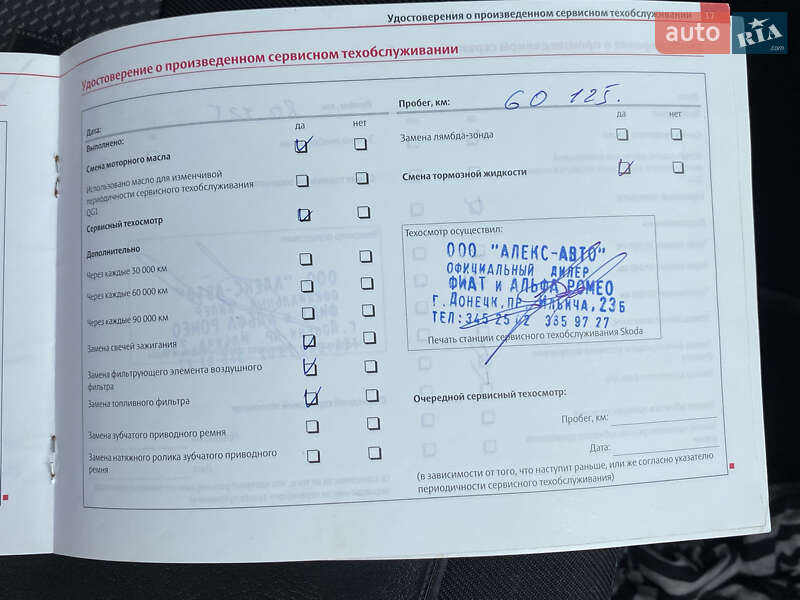 Удостоверения о произведенном сервисном техобслуживании 17
auto RIA .com
Удостоверение о произведенном сервисном техобслуживании
Дата:
Выполнено:
да нет
Смена моторного масла
Использовано масло для изменчивой
периодичности сервисного техобслуживания
QG1
Сервисный техосмотр
Дополнительно
Через каждые 30 000 км
Через каждые 60 000 км
Через каждые 90 000 км
Замена свечей зажигания
Замена фильтрующего элемента воздушного
фильтра
Замена топливного фильтра
Замена зубчатого приводного ремня
Замена натяжного ролика зубчатого приводного
ремня
Пробег, км: 60 125.
да нет
Замена лямбда-зонда
Смена тормозной жидкости
Техосмотр осуществил:
ООО "АЛЕКС-АВТО"
ОФИЦИАЛЬНЫЙ ДИЛЕР
ФИАТ и АЛЬФА РОМЕО
г. Донецк, пр. Ильича, 23б
ТЕЛ: 345 25 42 385 97 27
Печать станции сервисного техобслуживания Skoda
Очередной сервисный техосмотр:
Пробег, км:
Дата:
(в зависимости от того, что наступит раньше, или же согласно указателю
периодичности сервисного техобслуживания)